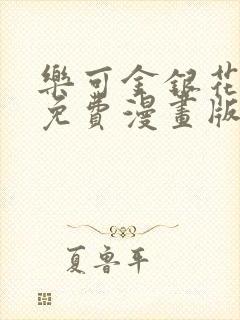 樂可金銀花
免費漫畫版
夏魯平